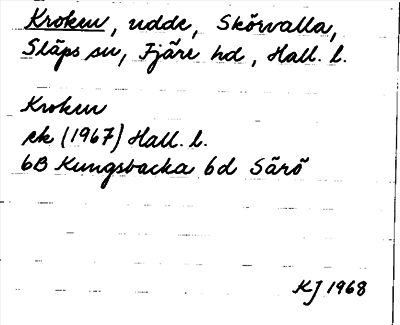 Kroken, udde, Skörvalla,
Släps sn, Fjäre hd, Hall. l.
Kroken
ek (1967) Hall. l.
6B Kungsbacka 6d Särö
KJ 1968